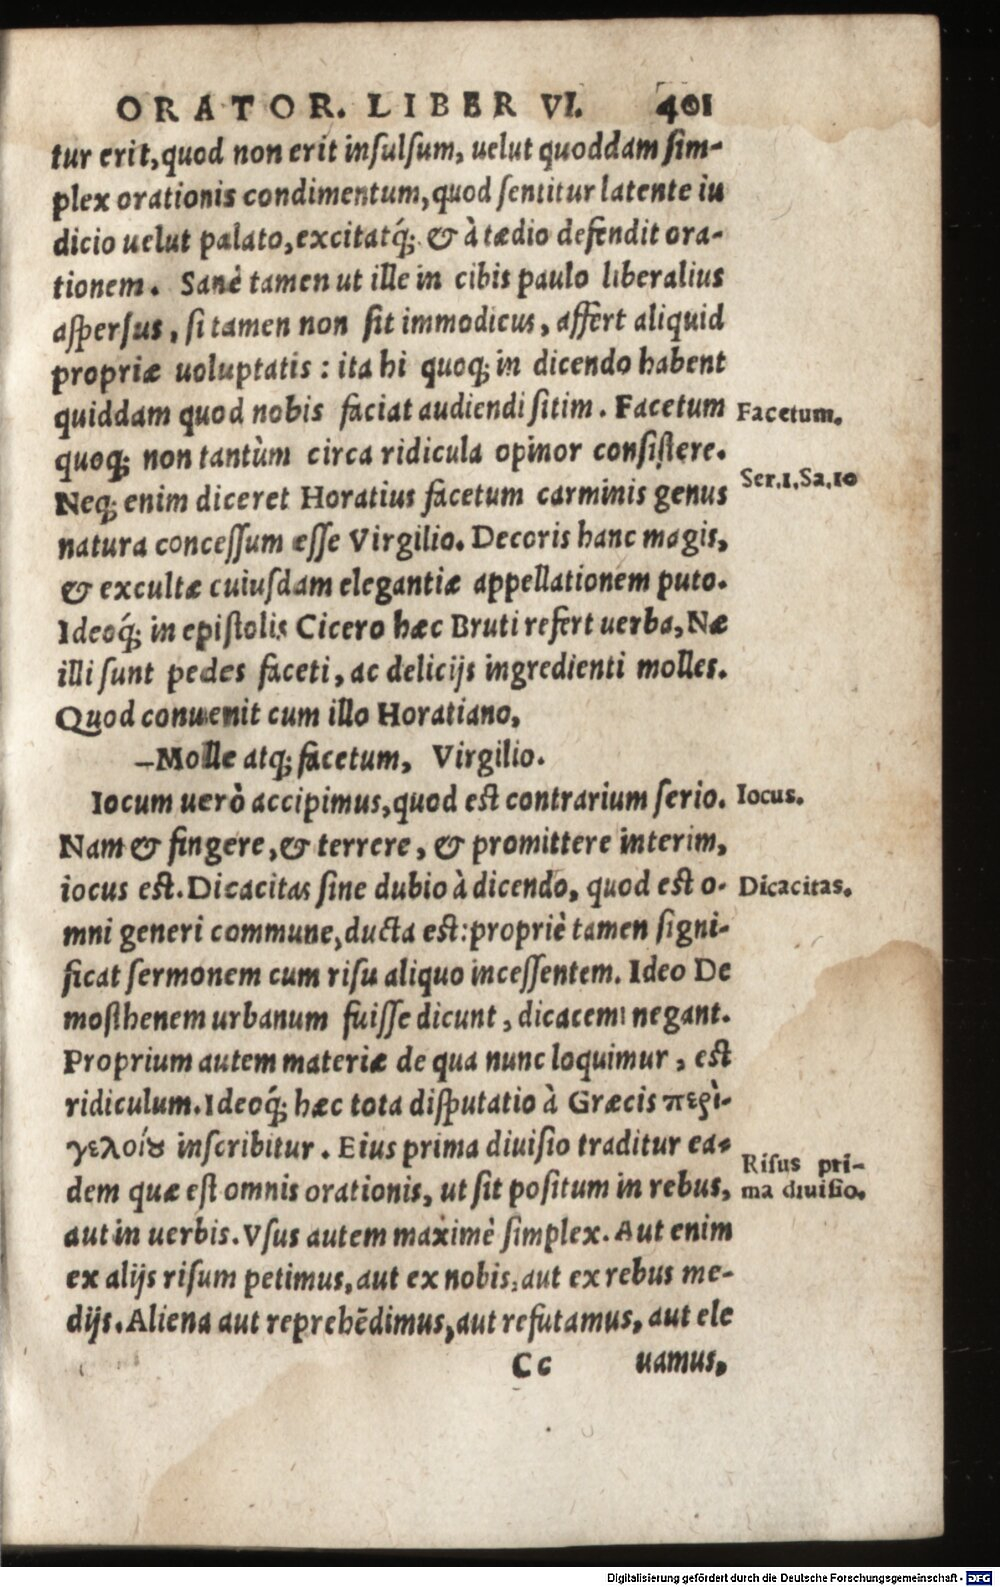 ORATOR. LIBER VI. 401
tur erit, quod non erit insulsum, uelut quoddam sim-
plex orationis condimentum, quod sentitur latente iu
dicio uelut palato, excitatq́; & à tædio defendit ora-
tionem. Sanè tamen ut ille in cibis paulo liberalius
aspersus, si tamen non sit immodicus, affert aliquid
propriæ uoluptatis: ita hi quoq; in dicendo habent
quiddam quod nobis faciat audiendi sitim. Facetum
Facetum.
quoq; non tantùm circa ridicula opinor consistere.
Neq; enim diceret Horatius facetum carminis genus
Ser.1.Sa.10
natura concessum esse Virgilio. Decoris hanc magis,
& excultæ cuiusdam elegantiæ appellationem puto.
Ideoq́; in epistolis Cicero hæc Bruti refert uerba, Næ
illi sunt pedes faceti, ac delicijs ingredienti molles.
Quod conuenit cum illo Horatiano,
—Molle atq; facetum, Virgilio.
Iocum uerò accipimus, quod est contrarium serio.
Iocus.
Nam & fingere, & terrere, & promittere interim,
iocus est. Dicacitas sine dubio à dicendo, quod est o-
Dicacitas.
mni generi commune, ducta est: propriè tamen signi-
ficat sermonem cum risu aliquo incessentem. Ideo De
mosthenem urbanum fuisse dicunt, dicacem negant.
Proprium autem materiæ de qua nunc loquimur, est
ridiculum. Ideoq́; hæc tota disputatio à Græcis περὶ-
γελοίȣ inscribitur. Eius prima diuisio traditur ea-
dem quæ est omnis orationis, ut sit positum in rebus,
Risus pri-
ma diuisio.
aut in uerbis. Vsus autem maximè simplex. Aut enim
ex alijs risum petimus, aut ex nobis, aut ex rebus me-
dijs. Aliena aut reprehēdimus, aut refutamus, aut ele
Cc uamus,
Digitalisierung gefördert durch die Deutsche Forschungsgemeinschaft - DFG